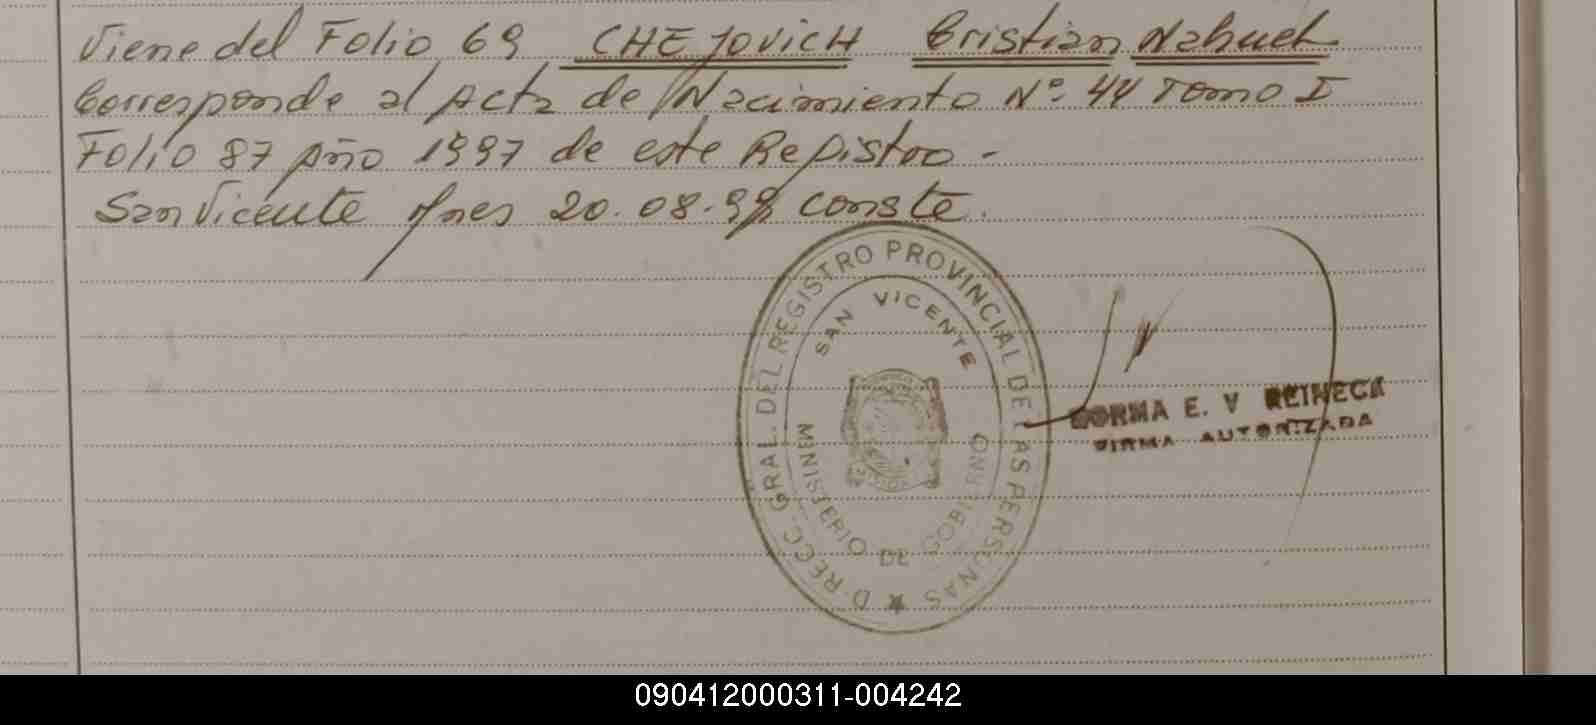 Viene del Folio 69 CHEJOVICH Cristian Nahuel
Corresponde al Acta de Nacimiento Nº 44 Tomo I
Folio 87 Año 1997 de este Registro -
San Vicente Mnes 20.08.98 conste.
D·RECC. GRAL. DEL REGISTRO PROVINCIAL DE LAS PERSONAS
SAN VICENTE
MINISTERIO DE GOBIERNO
NORMA E. V REINECK
FIRMA AUTORIZADA
090412000311-004242